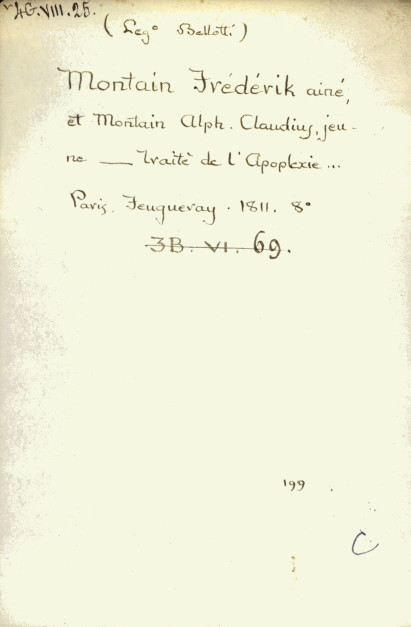 4G.VIII.25.
(Leg° Bellotti)
Montain Frédérik ainé,
et Montain Alph. Claudius, jeu-
ne — Traité de l'Apoplexie...
Paris. Feugueray. 1811. 8°
3B. VI. 69.
199
C